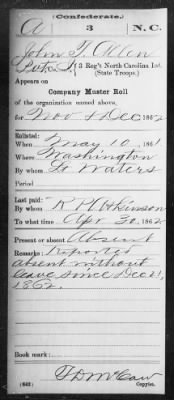 (Confederate.)
A 3 N.C.
John T. Allen
Pvt. Co. I, 3 Reg't North Carolina Inf.
(State Troops.)
Appears on
Company Muster Roll
of the organization named above,
for Nov & Dec, 1862
Enlisted:
When May 10, 1861
Where Washington
By whom Waters
Period
Last paid:
By whom R H Atkinson
To what time Apr 30, 1862
Present or absent Absent
Remarks: Reported
absent without
leave since Dec 21,
1862.
Book mark:
(642) Copyist.